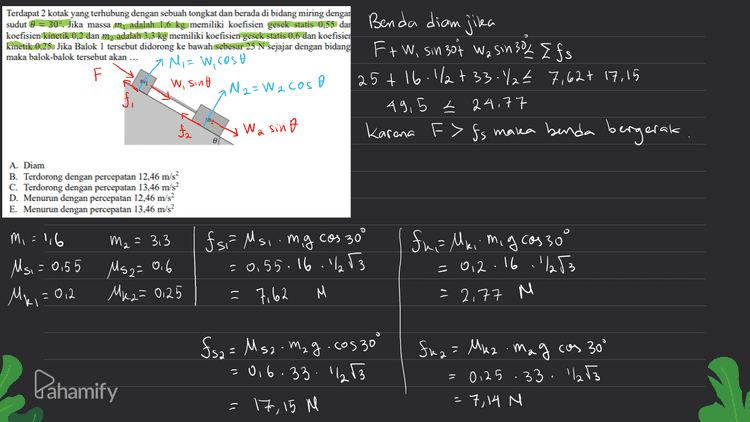 Terdapat 2 kotak yang terhubung dengan sebuah tongkat dan berada di bidang miring dengan
sudut θ = 30°. Jika massa m₁ adalah 1,6 kg memiliki koefisien gesek statis 0,55 dan
koefisien kinetik 0,2 dan m₂ adalah 3,3 kg memiliki koefisien gesek statis 0,6 dan koefisien
kinetik 0,25. Jika Balok 1 tersebut didorong ke bawah sebesar 25 N sejajar dengan bidang
maka balok-balok tersebut akan …
N₁ = W₁ cos θ
F
W₁ sin θ
f₁
N₂ = W₂ cos θ
f₂
W₂ sin θ
θ
A. Diam
B. Terdorong dengan percepatan 12,46 m/s²
C. Terdorong dengan percepatan 13,46 m/s²
D. Menurun dengan percepatan 12,46 m/s²
E. Menurun dengan percepatan 13,46 m/s²
Benda diam jika
F + W₁ sin 30 + W₂ sin 30 ≤ Σ fs
25 + 16 · 1/2 + 33 · 1/2 ≤ 7,62 + 17,15
49,5 ≤ 24,77
Karena F > fs maka benda bergerak.
m₁ = 1,6 m₂ = 3,3
Ms₁ = 0,55 Ms₂ = 0,6
Mk₁ = 0,2 Mk₂ = 0,25
fs₁ = Ms₁ · m₁g cos 30°
= 0,55 · 16 · 1/2 √3
= 7,62 N
fs₂ = Ms₂ · m₂g · cos 30°
= 0,6 · 33 · 1/2 √3
= 17,15 N
fk₁ = Mk₁ · m₁g cos 30°
= 0,2 · 16 · 1/2 √3
= 2,77 N
fk₂ = Mk₂ · m₂g cos 30°
= 0,25 · 33 · 1/2 √3
= 7,14 N
Pahamify